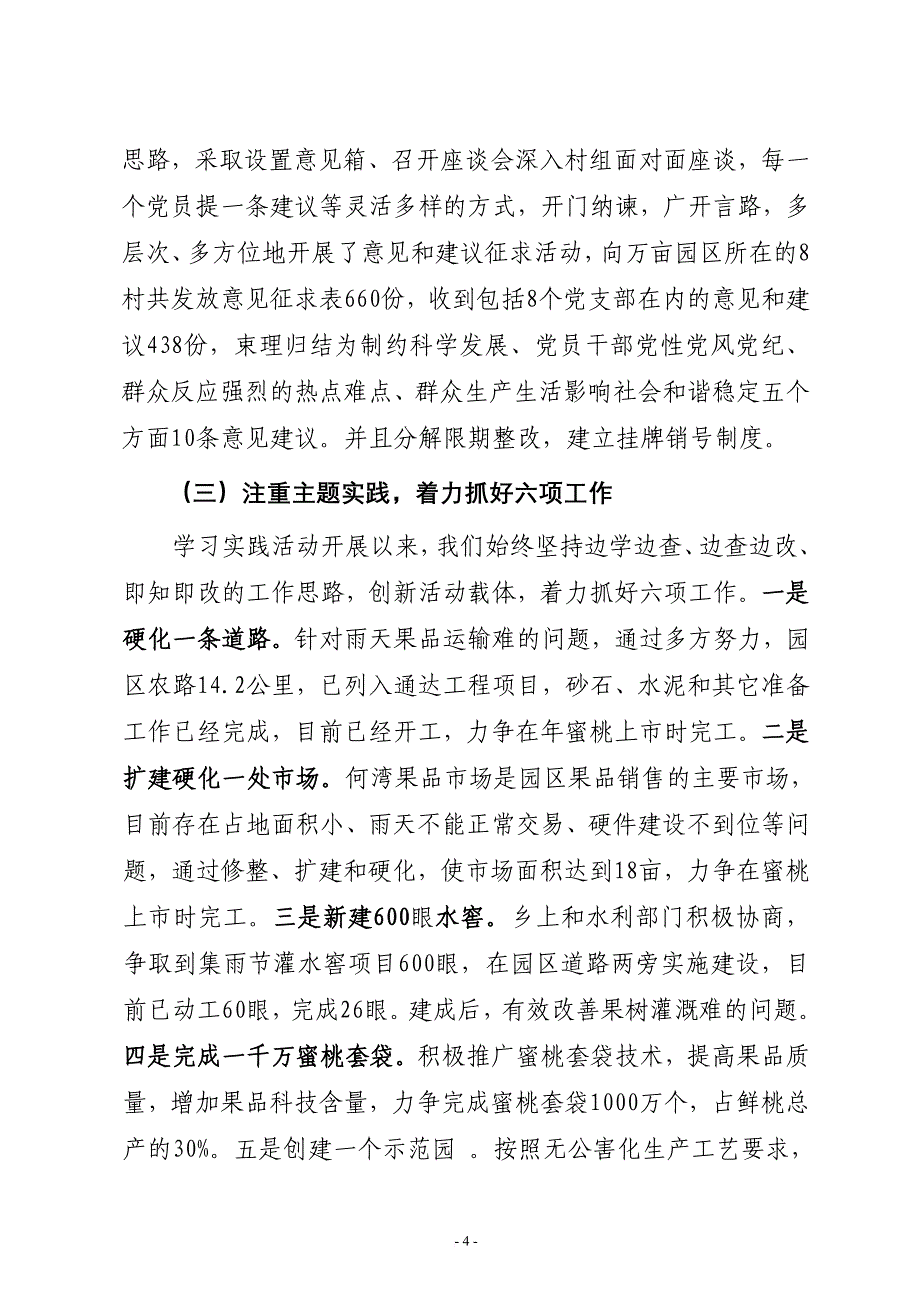 思路，采取设置意见箱、召开座谈会深入村组面对面座谈，每一
个党员提一条建议等灵活多样的方式，开门纳谏，广开言路，多
层次、多方位地开展了意见和建议征求活动，向万亩园区所在的8
村共发放意见征求表660份，收到包括8个党支部在内的意见和建
议438份，束理归结为制约科学发展、党员干部党性党风党纪、
群众反应强烈的热点难点、群众生产生活影响社会和谐稳定五个
方面10条意见建议。并且分解限期整改，建立挂牌销号制度。
（三）注重主题实践，着力抓好六项工作
学习实践活动开展以来，我们始终坚持边学边查、边查边改、
即知即改的工作思路，创新活动载体，着力抓好六项工作。一是
硬化一条道路。针对雨天果品运输难的问题，通过多方努力，园
区农路14.2公里，已列入通达工程项目，砂石、水泥和其它准备
工作已经完成，目前已经开工，力争在年蜜桃上市时完工。二是
扩建硬化一处市场。何湾果品市场是园区果品销售的主要市场，
目前存在占地面积小、雨天不能正常交易、硬件建设不到位等问
题，通过修整、扩建和硬化，使市场面积达到18亩，力争在蜜桃
上市时完工。三是新建600眼水窖。乡上和水利部门积极协商，
争取到集雨节灌水窖项目600眼，在园区道路两旁实施建设，目
前已动工60眼，完成26眼。建成后，有效改善果树灌溉难的问题。
四是完成一千万蜜桃套袋。积极推广蜜桃套袋技术，提高果品质
量，增加果品科技含量，力争完成蜜桃套袋1000万个，占鲜桃总
产的30%。五是创建一个示范园 。按照无公害化生产工艺要求，
- 4 -